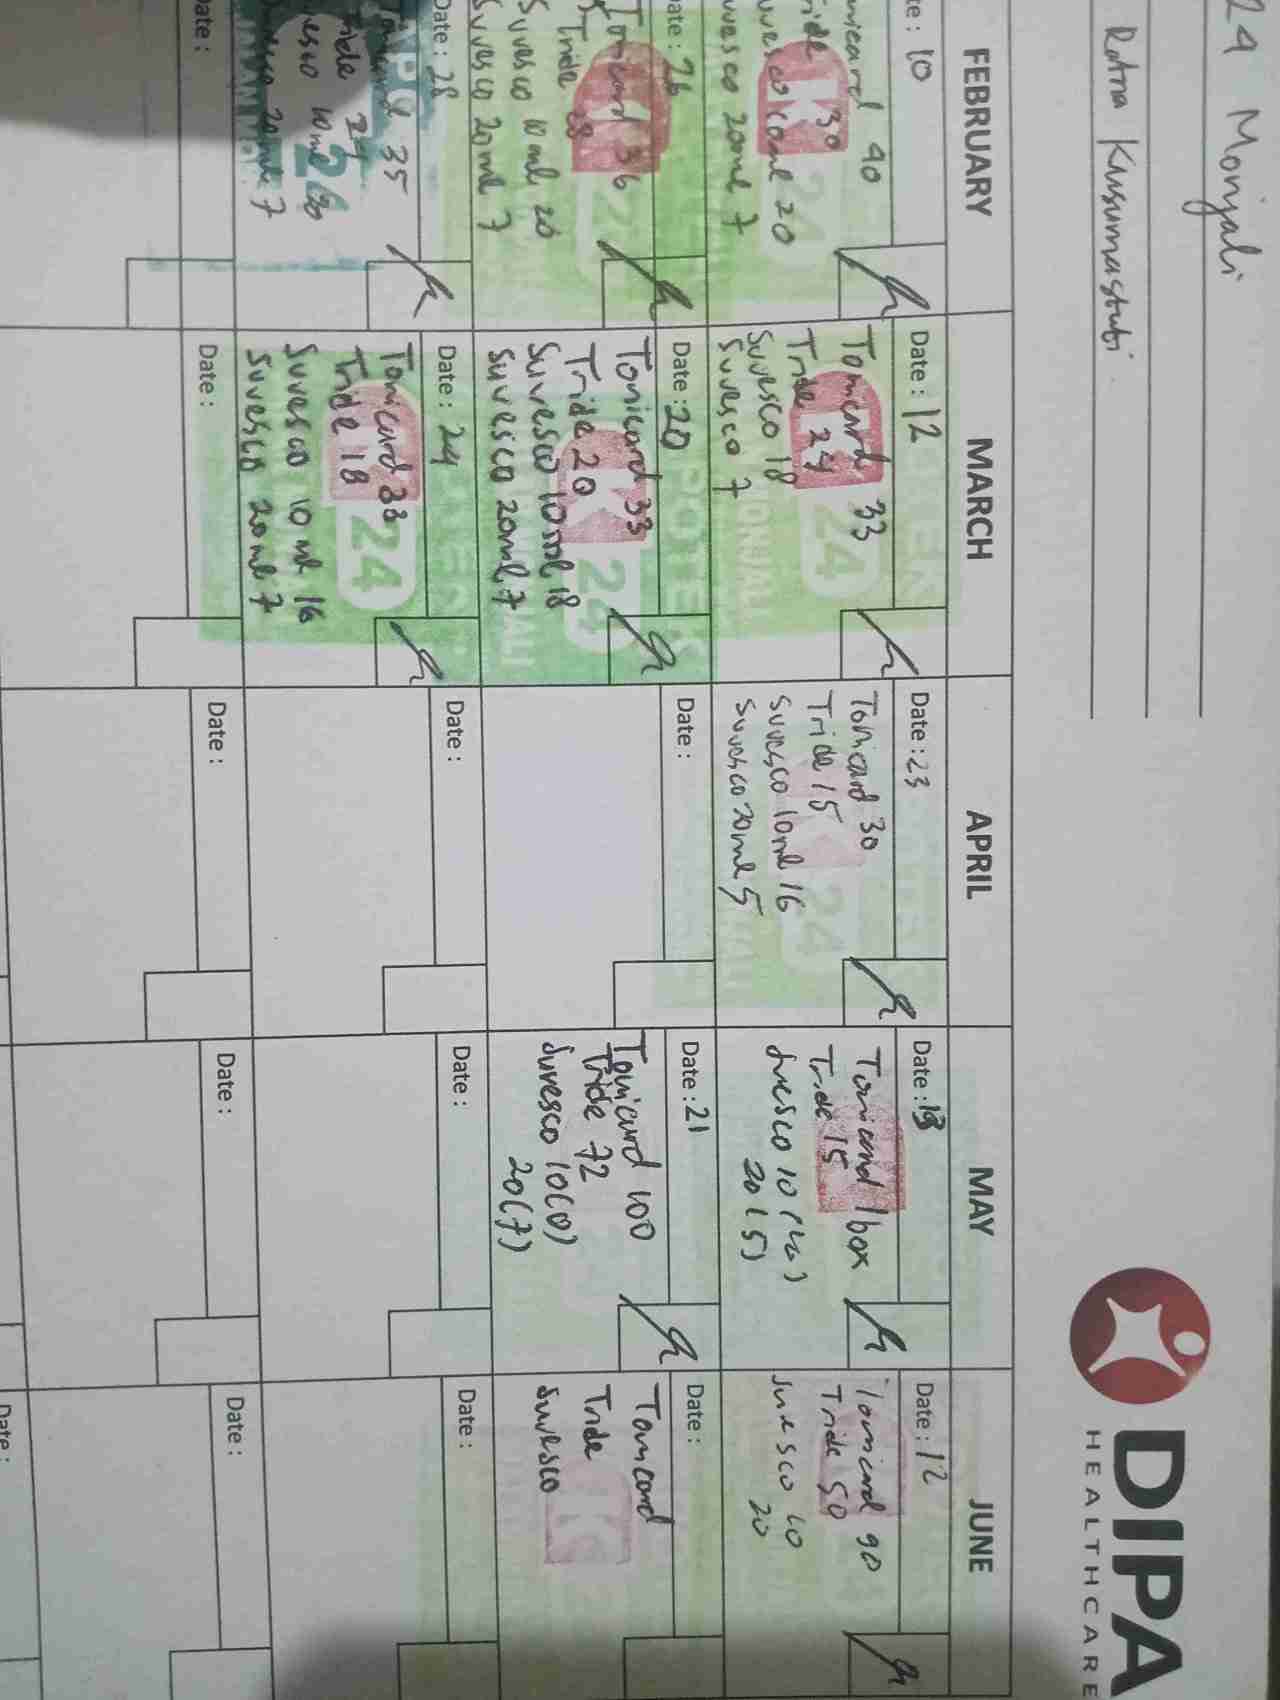 24 Monjali
Ratna Kusumastuti
DIPA
HEALTHCARE
FEBRUARY
MARCH
APRIL
MAY
JUNE
te : 10
nicard 40
ride 30
uvesco 10ml 20
uvesco 20ml 7
Date : 12
Tonicard 33
Tride 24
Suvesco 18
Suvesco 7
Date : 23
Tonicard 30
Tride 15
Suvesco 10ml 16
Suvesco 20ml 5
Date : 13
Tonicard 1 box
Tride 15
Suvesco 10
20 (5)
Date : 12
Tonicard 90
Tride 50
Suvesco 10
20
ate : 26
Tonicard 36
Tride 28
Suvesco 10ml 20
Suvesco 20ml 7
Date : 20
Tonicard 33
Tride 20
Suvesco 10ml 18
Suvesco 20ml 7
Date :
Date : 21
Tonicard 100
Tride 72
Suvesco 10(0)
20(7)
Date :
Tonicard
Tride
Suvesco
Date : 28
35
Tride
10ml
7
Date : 24
Tonicard 33
Tride 18
Suvesco 10 ml 16
Suvesco 20ml 7
Date :
Date :
Date :
Date :
Date :
Date :
Date :
Date :
Date :
K 24